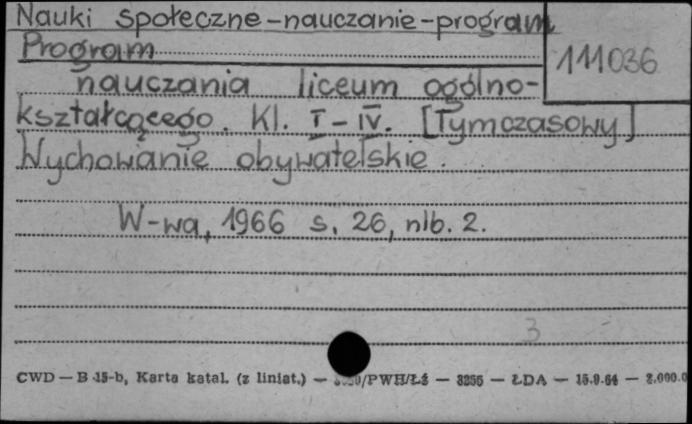 Nauki społeczne-nauczanie-program
111036
Program
nauczania liceum ogólno-
kształcącego. Kl. I-IV. [Tymczasowy]
Wychowanie obywatelskie.
W-wa, 1966 s. 26, nlb. 2.
3
CWD — B 15-b, Karta katal. (z liniat.) — /PWH/Łź — 3255 — ŁDA — 15.9.64 — 2.000.0